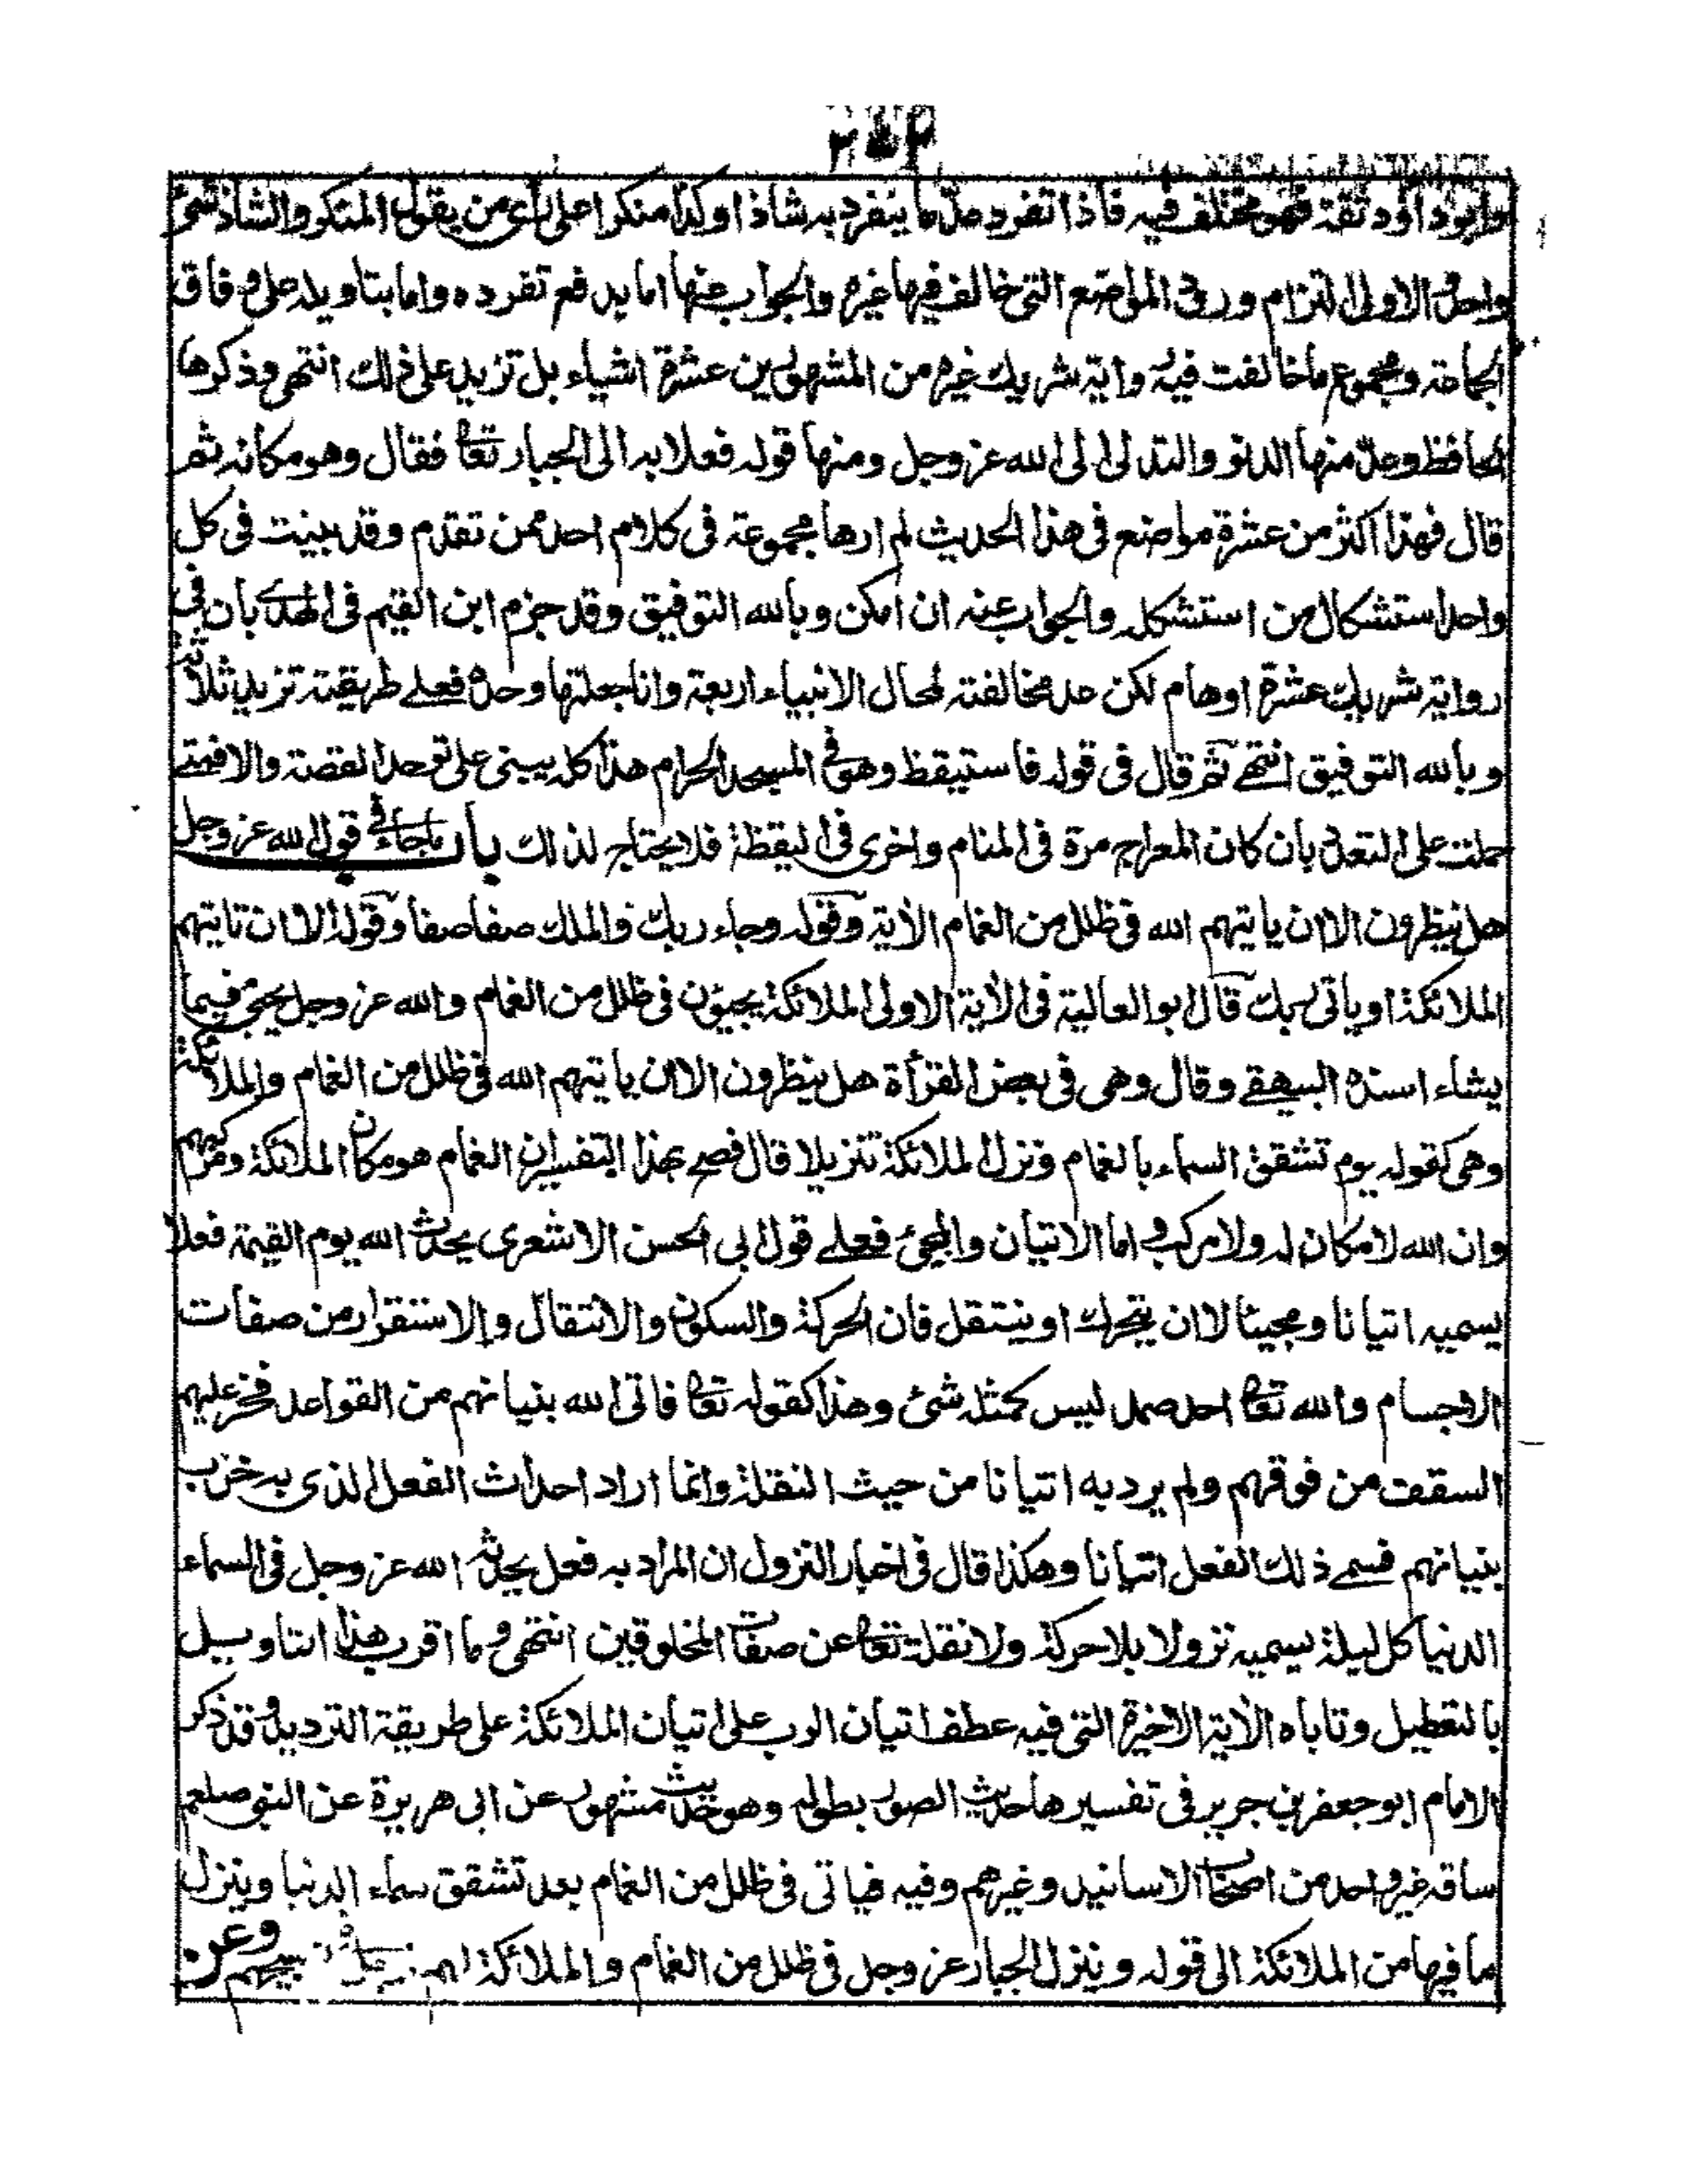 وابوداؤد ثقة فهو مختلف فيه فاذا تفرد عد ما ينفرد به شاذا وكذا منكرا على رأى من يقول المنكر والشاذ شئ
واحد والاولى التزام ورود المواضع التى خالف فيها غيره والجواب عنها اما بدفع تفرده واما بتاويله على وفاق
الجماعة ومجموع ماخالفت فيه رواية شريك غيره من المشهورين عشرة اشياء بل تزيد على ذلك انتهى وذكرها
الحافظ وعد منها الدنو والتدلى الى الله عز وجل ومنها قوله فعلا به الى الجبار تعا فقال وهو مكانه ثم
قال فهذا اكثر من عشرة مواضع فى هذا الحديث لم ارها مجموعة فى كلام احد ممن تقدم وقد بينت فى كل
واحد استشكال من استشكله والجواب عنه ان امكن وبالله التوفيق وقد جزم ابن القيم فى الهدى بان فى
رواية شريك عشرة اوهام لكن عد مخالفته لمحال الانبياء اربعة وانا جعلتها وحدة فعلے طريقته تزيد ثلاثة
وبالله التوفيق انتهے ثم قال فى قوله فاستيقظ وهو فى المسجد الحرام هذا كله يبينى على توحد القصة والا فمتے
حملت على التعدد بان كان المعراج مرة فى المنام واخرى فى اليقظة فلا يحتاج لذلك باب ماجاء فى قول الله عز وجل
هل ينظرون الا ان ياتيهم الله فى ظلل من الغمام الآية وقوله وجاء ربك والملك صفا صفا وقوله الا ان تاتيهم
الملائكة او ياتى ربك قال ابو العالية فى الآية الاولى الملائكة يجيؤن فى ظلل من الغمام والله عز وجل يجئ فيما
يشاء اسنده البيهقے وقال وهى فى بعض القرأة هل ينظرون الا ان ياتيهم الله فى ظلل من الغمام والملائكة
وهى كقوله يوم تشقق السماء بالغمام ونزل الملائكة تنزيلا قال فصح بهذا التفسير ان الغمام هو مكان الملائكة ومركبهم
وان الله لا مكان له ولا مركب واما الاتيان والمجئ فعلے قول ابى الحسن الاشعرى يحدث الله يوم القيمة فعلا
يسميه اتيانا ومجيئا لا ان يتحرك او ينتقل فان الحركة والسكون والانتقال والاستقرار من صفات
الاجسام والله تعا احد صمد ليس كمثله شئ وهذا كقوله تعا فاتى الله بنيانهم من القواعد فخر عليهم
السقف من فوقهم ولم يرد به اتيانا من حيث النقلة وانما اراد احداث الفعل الذى به خرب
بنيانهم فسمے ذلك الفعل اتيانا وهكذا قال فى اخبار النزول ان المراد به فعل يحدثه الله عز وجل فى السماء
الدنيا كل ليلة يسميه نزولا بلا حركة ولا نقلة تعا عن صفات المخلوقين انتهى وما اقرب هذا التاويل
بالتعطيل وتاباه الآية الاخيرة التى فيه عطف اتيان الرب على اتيان الملائكة على طريقة الترديد وقد ذكر
الامام ابو جعفر بن جرير فى تفسيرها حديث الصور بطوله وهو حديث مشهور عن ابى هريرة عن النبى صلعم
ساقه غير واحد من اصحاب الاسانيد وغيرهم وفيه فياتى فى ظلل من الغمام بعد تشقق سماء الدنيا وينزل
ما فيها من الملائكة الى قوله وينزل الجبار عز وجل فى ظلل من الغمام والملائكة لهم
وعن